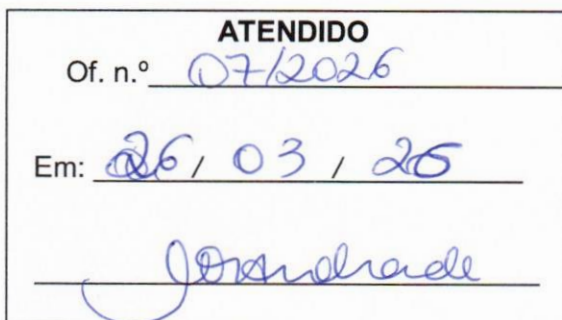 ATENDIDO
Of. n.º 07/2026
Em: 26 / 03 / 26